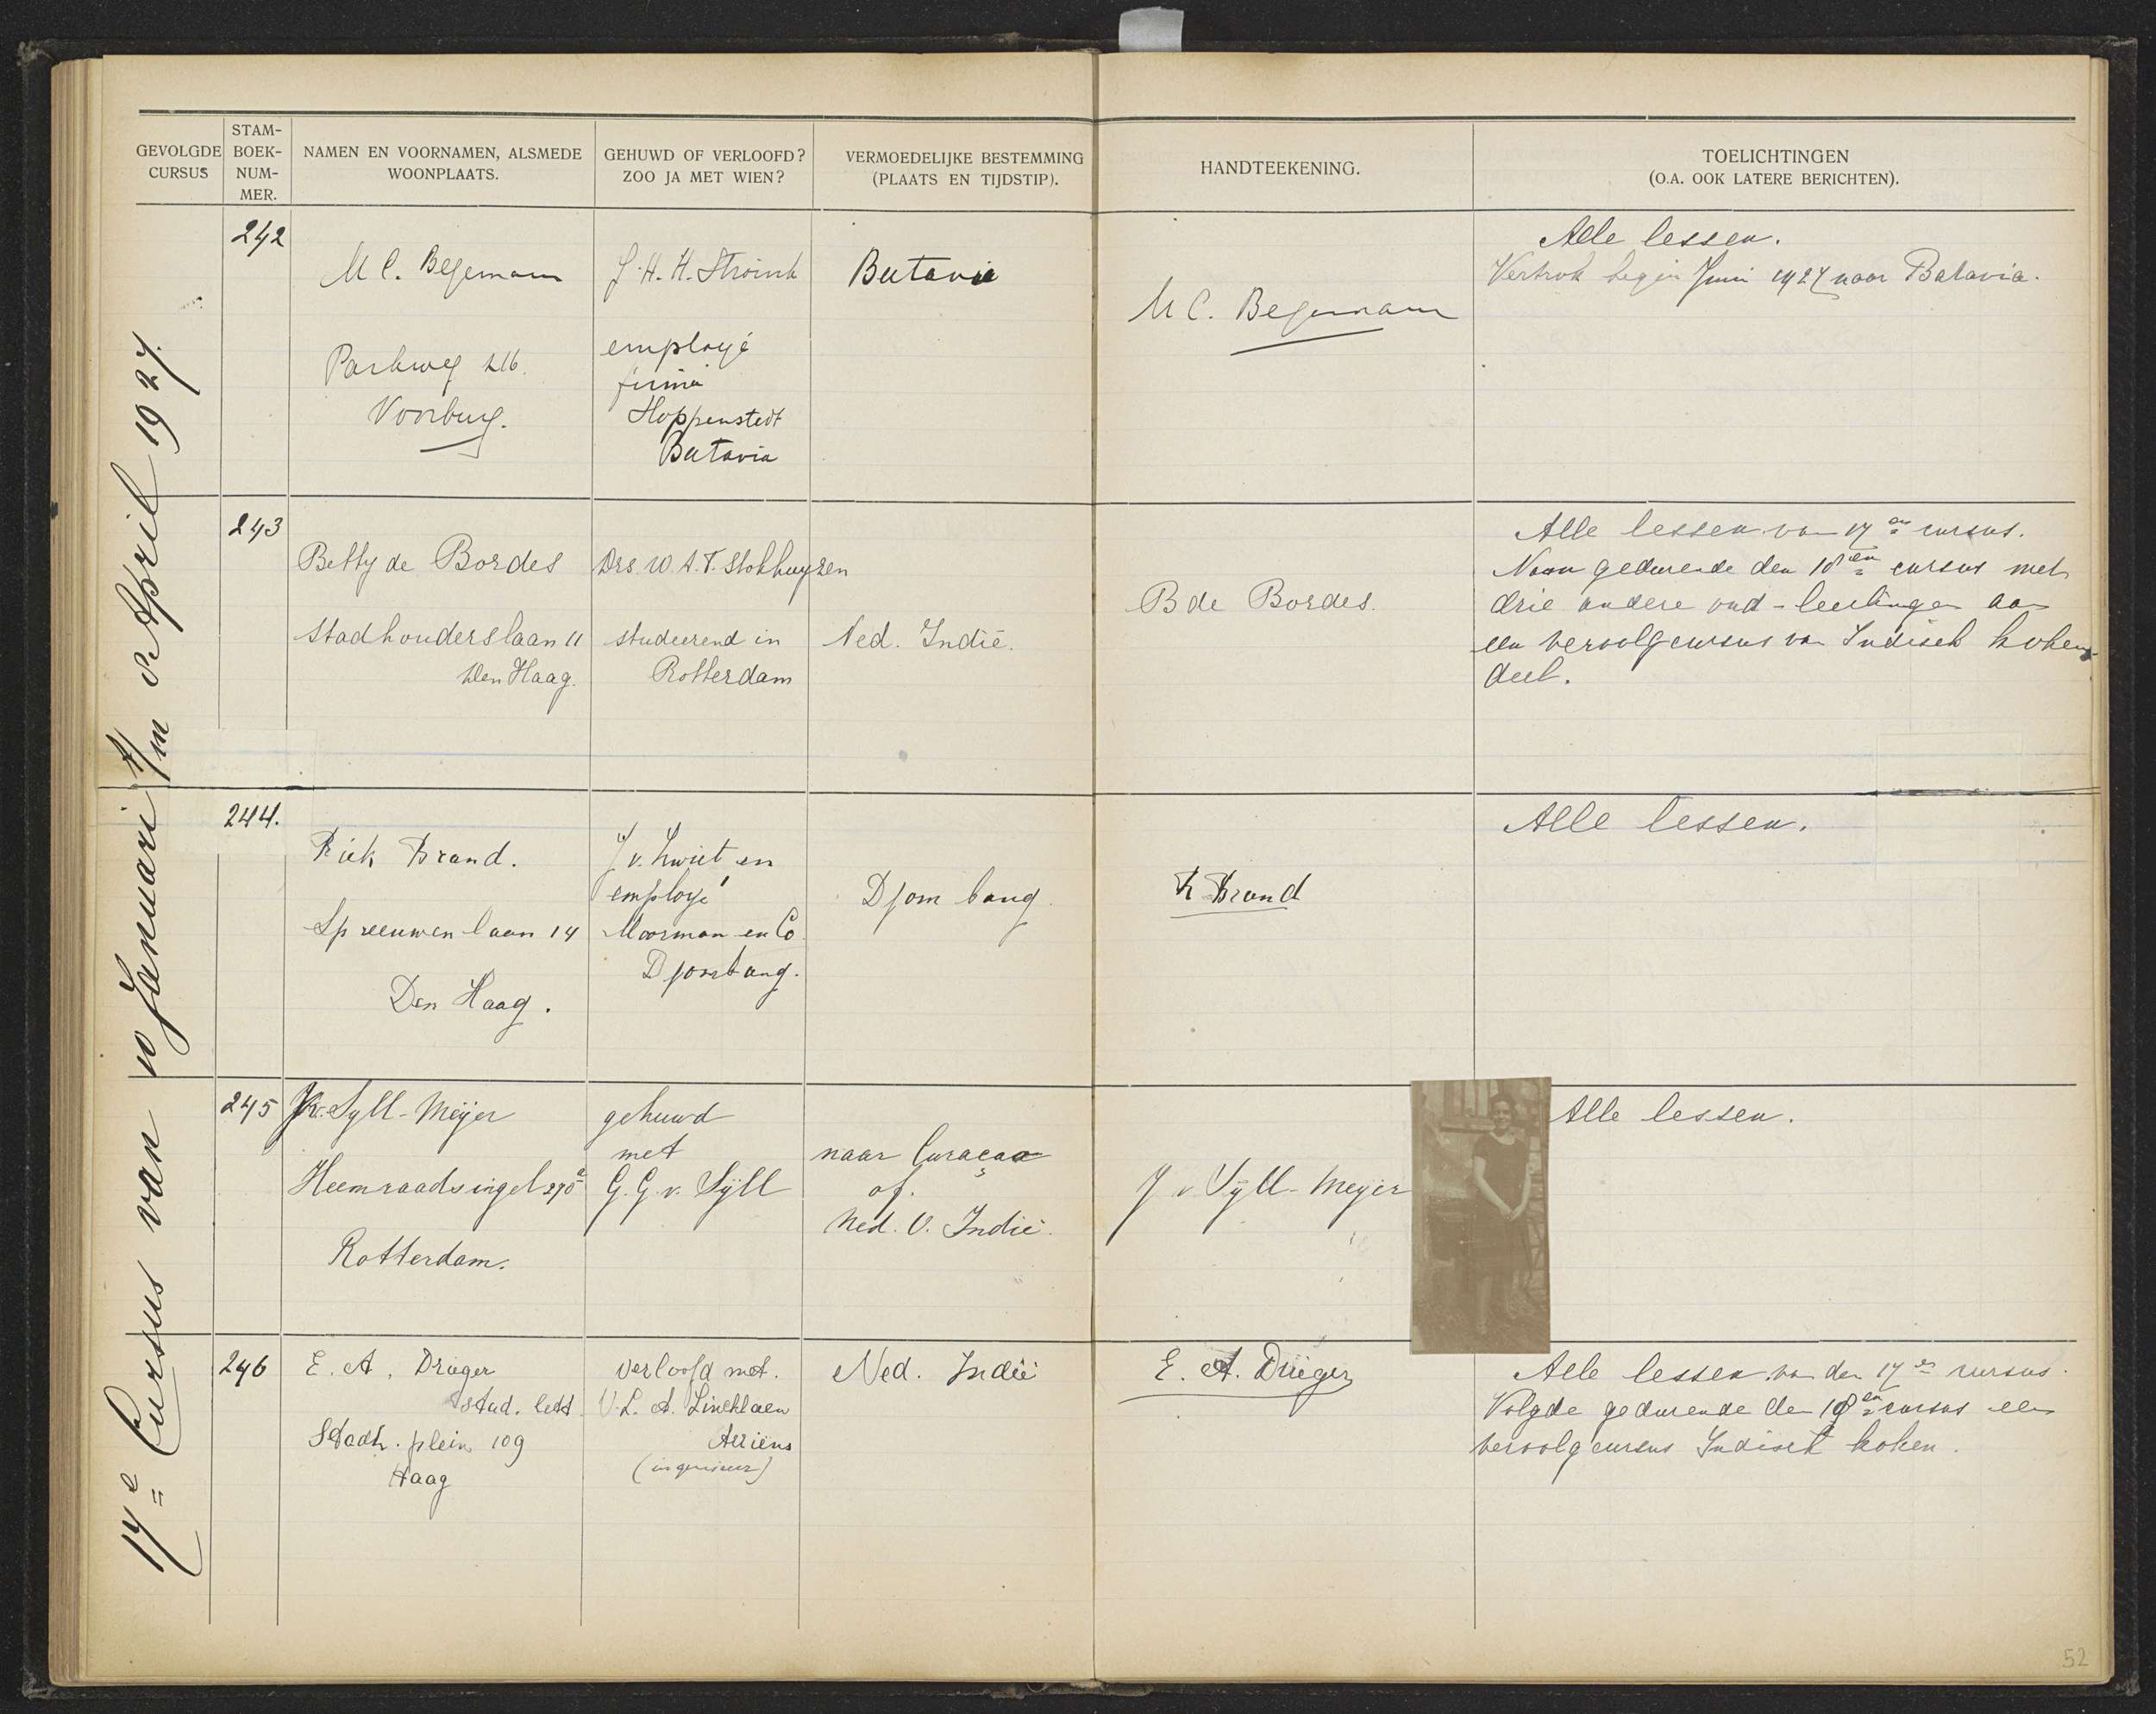 GEVOLGDE
CURSUS
STAM-
BOEK-
NUM-
MER.
NAMEN EN VOORNAMEN, ALSMEDE
WOONPLAATS.
GEHUWD OF VERLOOFD?
ZOO JA MET WIEN?
VERMOEDELIJKE BESTEMMING
(PLAATS EN TIJDSTIP).
HANDTEEKENING.
TOELICHTINGEN
(O.A. OOK LATERE BERICHTEN).
17e Cursus van 10 Januari t/m 2 April 1927.
242
M C. Begemann
Parkweg 216.
Voorburg.
J. H. H. Stroink
employé
firma
Hoppenstedt
Batavia
Batavia
M C. Begemann
Alle lessen.
Vertrok begin Juni 1927 naar Batavia.
243
Betty de Bordes
Stadhouderslaan 11
Den Haag.
Drs. W. A. T. Stokhuyzen
studeerend in
Rotterdam
Ned. Indië.
B de Bordes.
Alle lessen van 17en cursus.
Nam gedurende den 18en cursus met
drie andere oud-leerlingen aan
een vervolgcursus van Indisch koken
deel.
244.
Riek Brand.
Spreeuwenlaan 14
Den Haag.
J v. Zwieten
employé
Moorman en Co.
Djombang.
Djombang.
R Brand
Alle lessen.
245
J v. Syll-Meijer
Heemraadsingel 270a
Rotterdam.
gehuwd
met
G. G. v. Sÿll
naar Curaçao
of.
Ned. O. Indië.
J v Sÿll-Meyer
Alle lessen.
246
E. A. Drieger
stud. lett.
Stadh. plein 109
Haag
verloofd met.
V. L. A. Linthlaen
Arriëns
(ingenieur)
Ned. Indië
E. A. Drieger
Alle lessen van den 17en cursus.
Volgde gedurende den 18en cursus een
vervolgcursus Indisch koken.
52